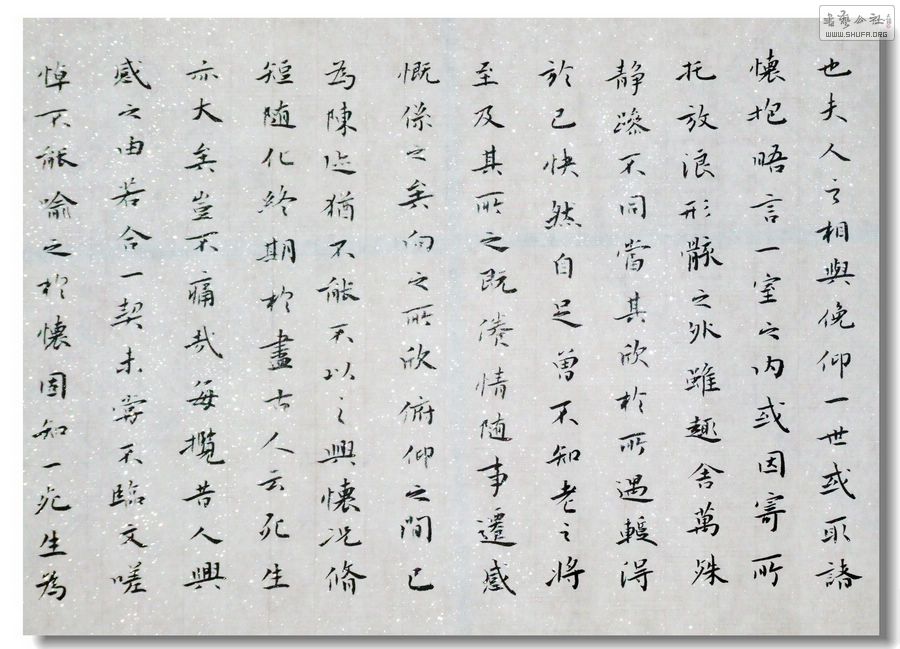 也夫人之相與俛仰一世或取諸
懷抱晤言一室之内或因寄所
托放浪形骸之外雖趣舍萬殊
静躁不同當其欣於所遇輒得
於己快然自足曾不知老之將
至及其所之既倦情随事遷感
慨係之矣向之所欣俯仰之間已
為陳迹猶不能不以之興懷况脩
短随化終期於盡古人云死生
亦大矣豈不痛哉每攬昔人興
感之由若合一契未嘗不臨文嗟
悼不能喻之於懷固知一死生為
書藝公社
WWW.SHUFA.ORG